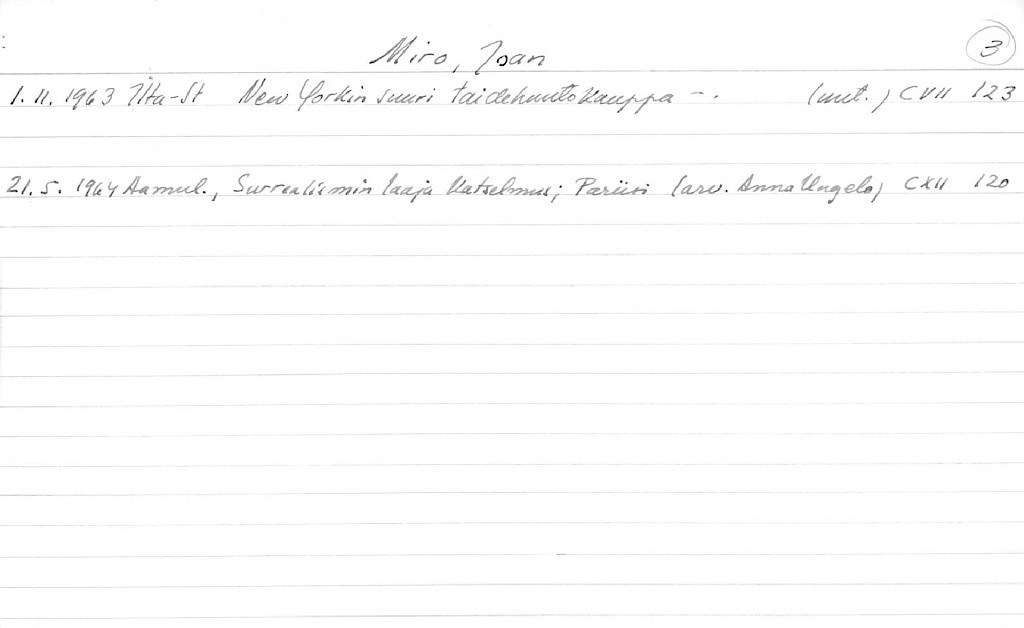 Miro, Joan
3
1.11.1963 Ilta-St New Yorkin suuri taidehuutokauppa -. (uut.) CVII 123
21.5.1964 Aamul., Surrealismin laaja katselmus; Pariisi (arv. Anna Ungelo) CXII 120